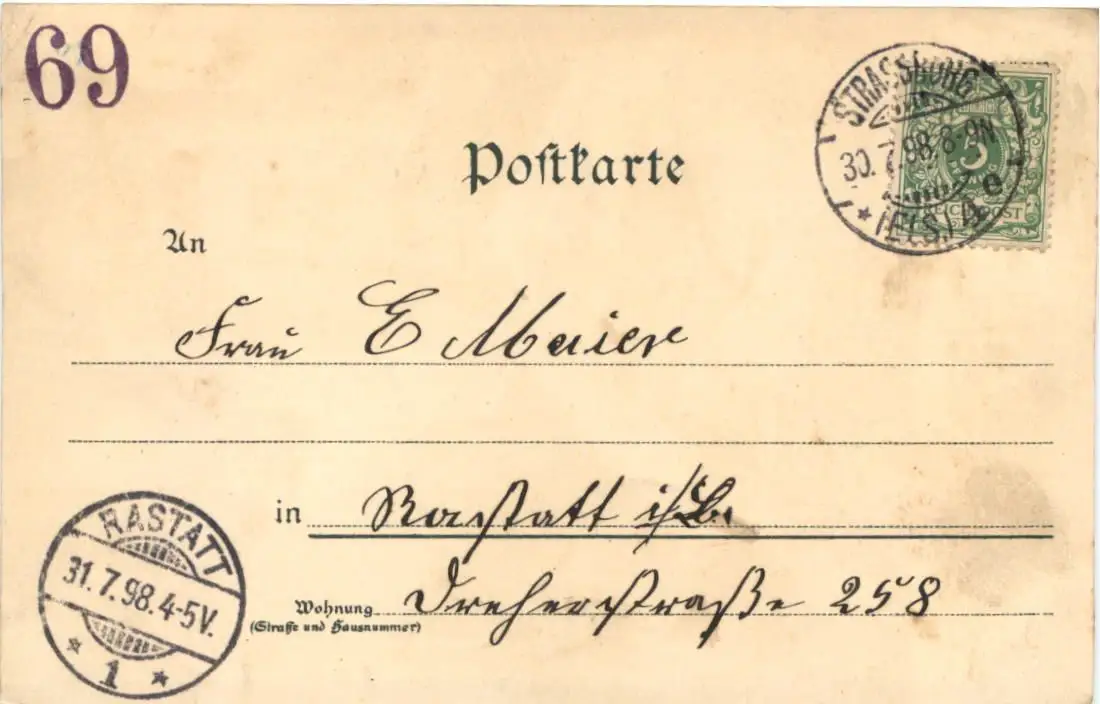 69
STRASSBURG
30. 7. 98. 8-9N
* (ELS.) 4 e
5
REICHSPOST
Postkarte
An
Frau E Maier
in Rastatt i/B.
RASTATT
31. 7. 98. 4-5V.
* 1 *
Wohnung
(Straße und Hausnummer)
Dreherstraße 258